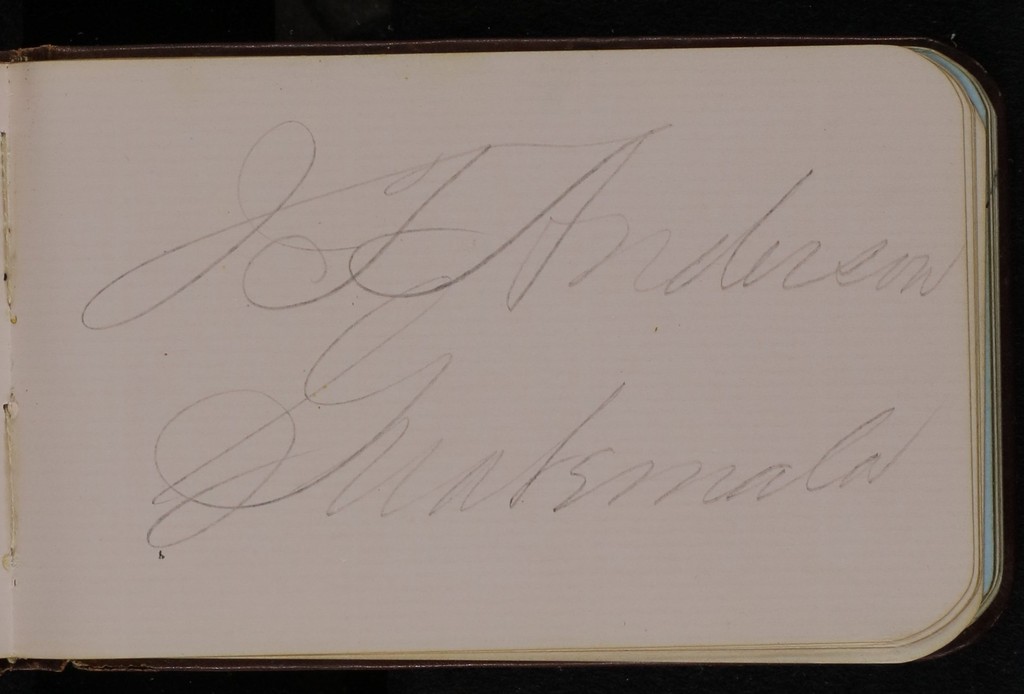 J T Anderson
Guatemala